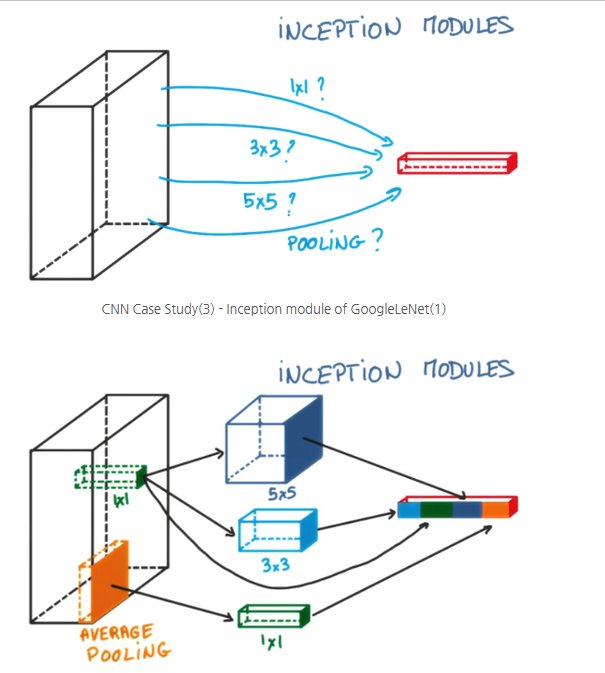 INCEPTION MODULES
1x1 ?
3x3 ?
5x5 ?
POOLING ?
CNN Case Study(3) - Inception module of GoogleLeNet(1)
INCEPTION MODULES
1x1
5x5
3x3
AVERAGE
POOLING
1x1